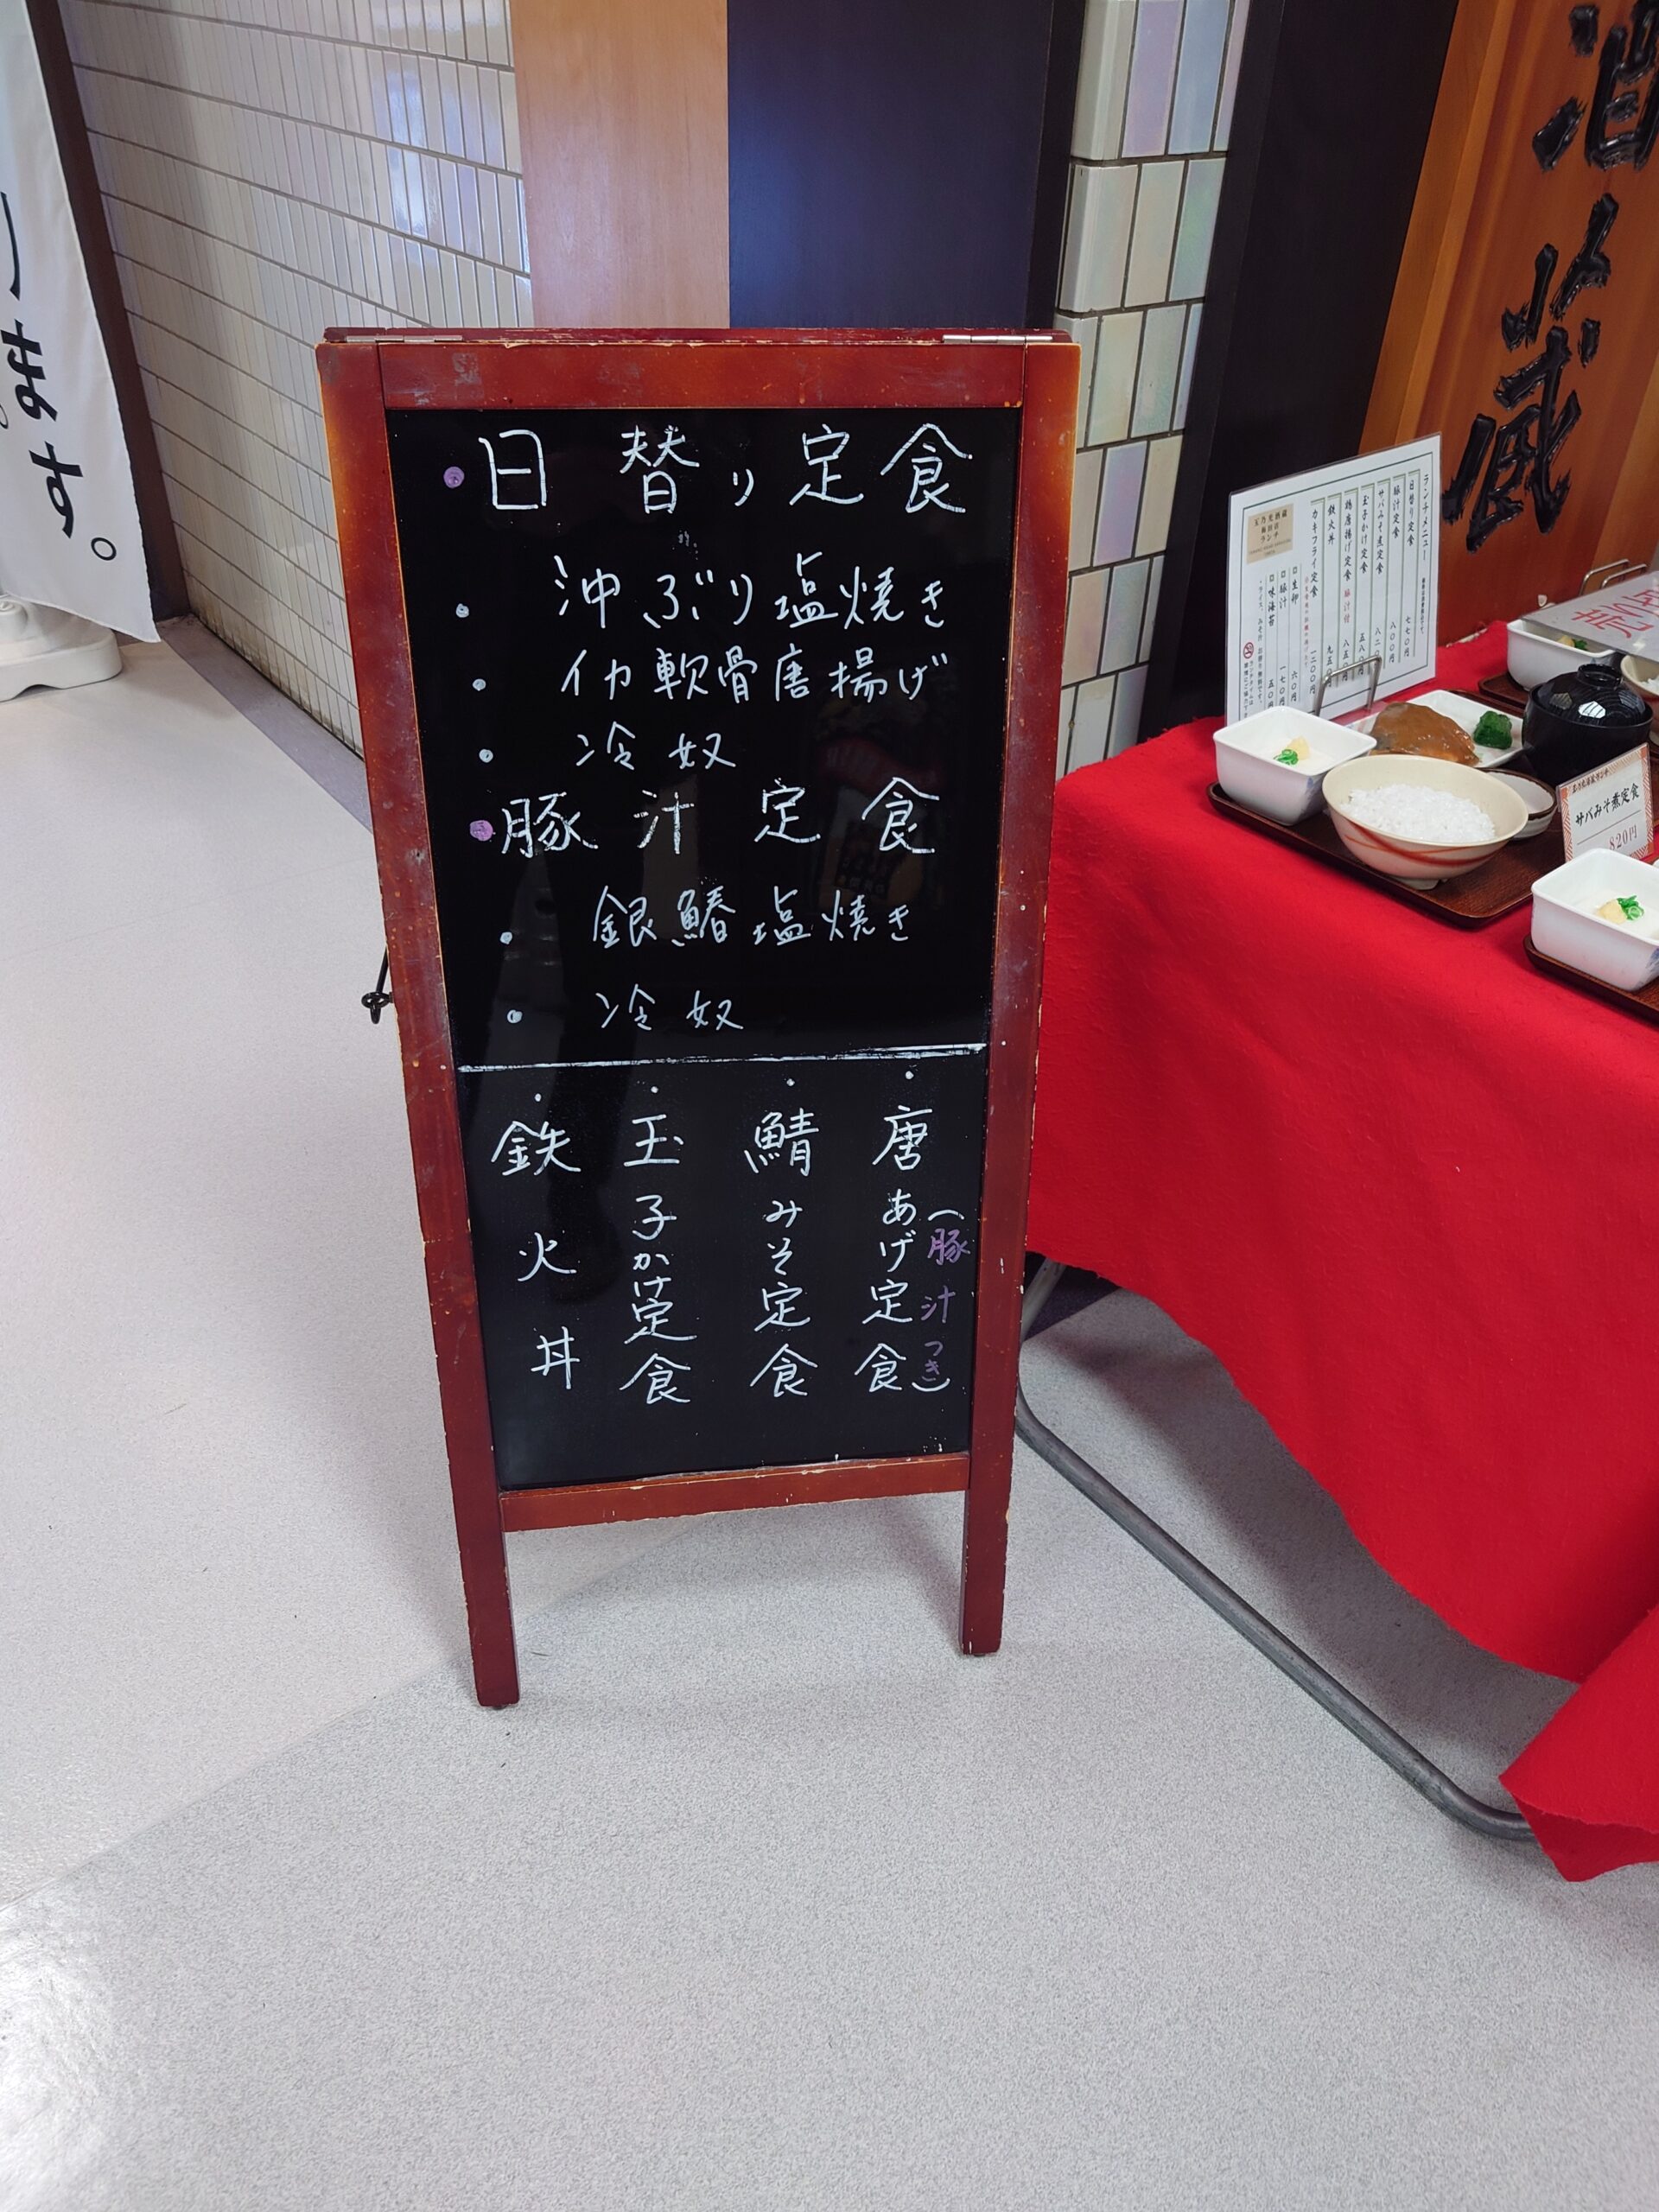 ります。
・日替り定食
・沖ぶり塩焼き
・イカ軟骨唐揚げ
・冷奴
・豚汁定食
・銀鰆塩焼き
・冷奴
・唐あげ定食
(豚汁つき)
・鯖みそ定食
・玉子かけ定食
・鉄火丼
酒蔵
ランチメニュー
日替り定食 七七〇円
豚汁定食 八〇〇円
サバみそ煮定食 八二〇円
玉子かけ定食 五八〇円
鶏唐揚げ定食 豚汁付 八五〇円
鉄火丼 九五〇円
カキフライ定食 一二〇〇円
生卵 六〇円
豚汁 一七〇円
味海苔 五〇円
ランチ
サバみそ煮定食
820円
売り切